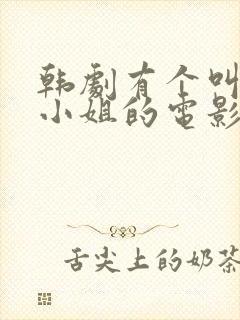 韩劇有个叫
小姐的電影
舌尖上的奶茶